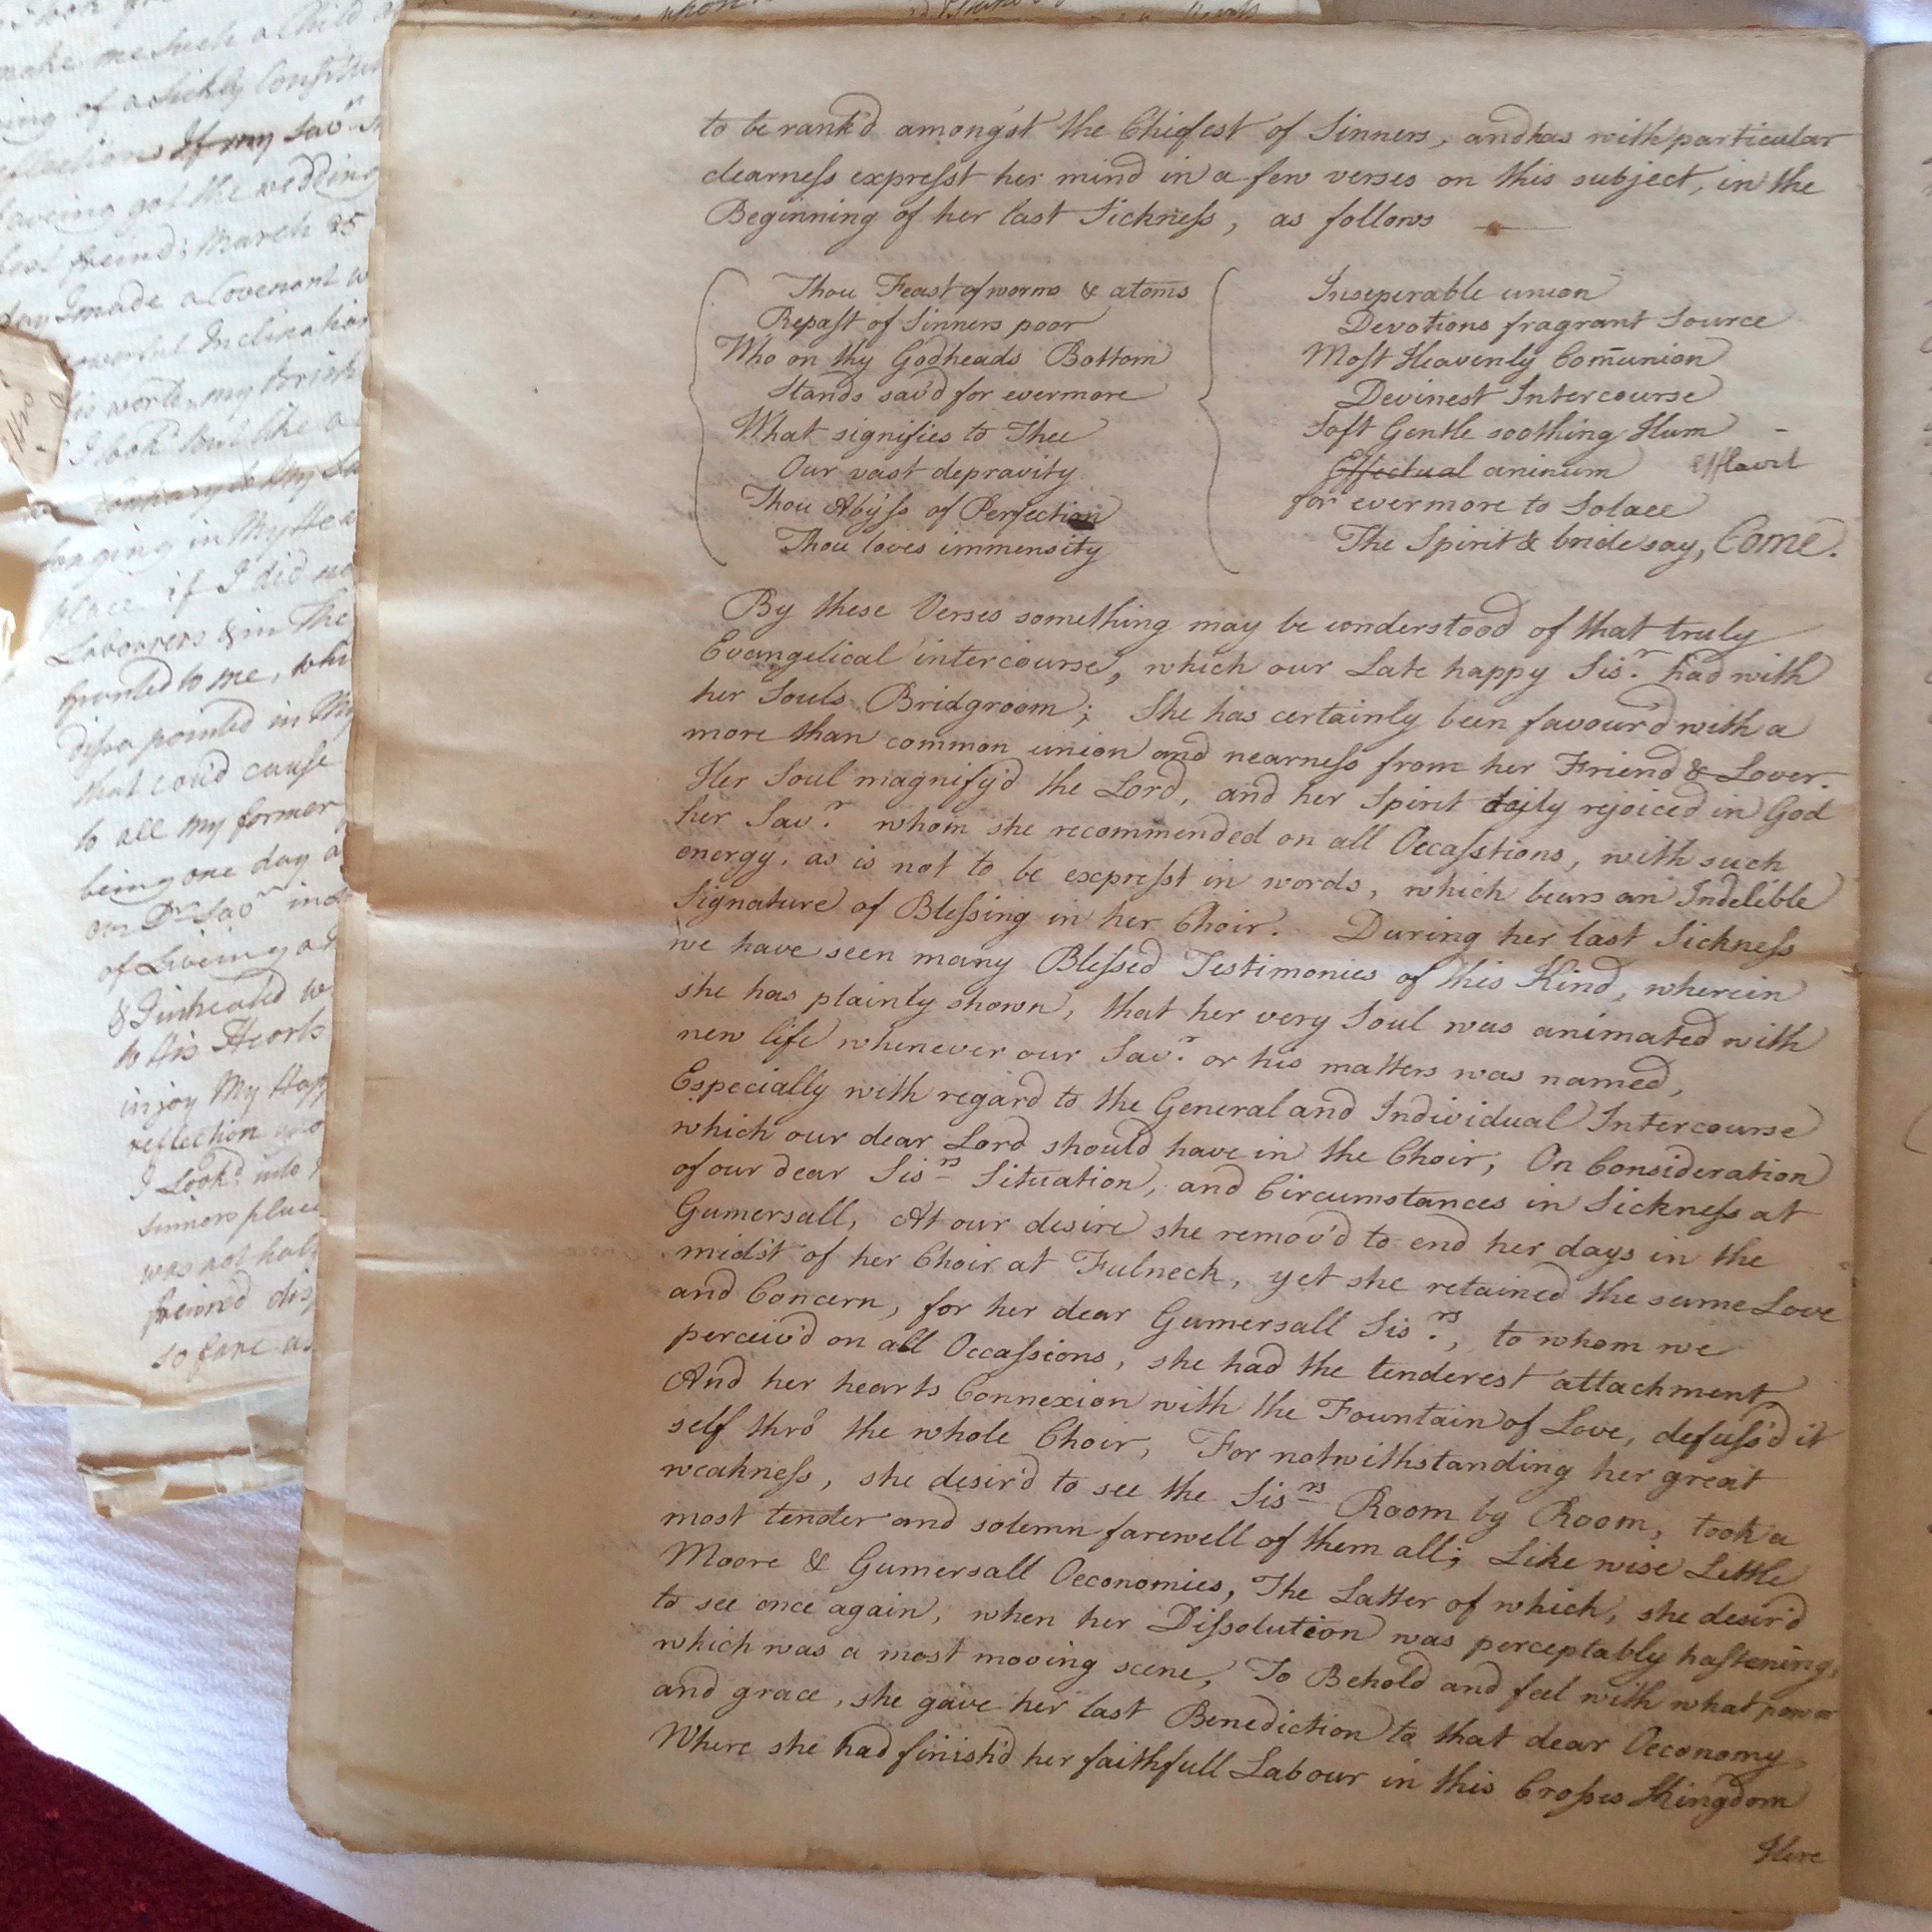 make me such a Child
ing of a sickly Constitu
flections If my Sav.r
haveing got the wedding
best freind; March 25
day I made a Covenant w
powerful Inclination
his world, my brisk
I look'd
longing in My Hea
place if I did no
Labourers & in the
fronted to me, whi
disapointed in My
that could cause
to all my former
being one day a
our Dr. Savr ind
of Liveing a
& I intreated
to His Hearts
injoy My Hap
reflection
I Look'd into
Sinners place
was not hal
freined dis
so fare as
to be rank'd amongst the Chiefest of Sinners, and has with particular
clearness exprest her mind in a few verses on this subject, in the
Beginning of her last Sickness, as follows —
Thou Feast of worms & atoms
Repast of Sinners poor
Who on thy Godheads Bottom
Stands sav'd for evermore
What signifies to Thee
Our vast depravity
Thou Abyss of Perfection
Thou loves immensity
Inseperable union
Devotions fragrant Source
Most Heavenly Com̄union
Devinest Intercourse
Soft Gentle soothing Hum -
Effectual aninum efflavit
for evermore to Solace
The Spirit & bride say, Come.
By these Verses something may be understood of that truly
Evangelical intercourse, which our Late happy Sis.r had with
her Souls Bridgroom; She has certainly been favour'd with a
more than common union and nearness from her Friend & Lover.
Her Soul magnify'd the Lord, and her Spirit daily rejoiced in God
her Sav.r whom she recommended on all Occasstions, with such
energy, as is not to be exprest in words, which bears an Indelible
Signature of Blessing in her Choir. During her last Sickness
we have seen many Blessed Testimonies of this Kind, wherein
she has plainly shown, that her very Soul was animated with
new life whenever our Sav.r or his matters was named,
Especially with regard to the General and Individual Intercourse
which our dear Lord should have in the Choir, On Consideration
of our dear Sis.rs Situation, and Circumstances in Sickness at
Gumersall, At our desire she remov'd to end her days in the
midst of her Choir at Fulneck, yet she retained the same Love
and Concern, for her dear Gumersall Sis.rs, to whom we
perceiv'd on all Occassions, she had the tenderest attachment,
And her hearts Connexion with the Fountain of Love, defuss'd it
self thro' the whole Choir, For notwithstanding her great
weakness, she desir'd to see the Sis.rs Room by Room, took a
most tender and solemn farewell of them all; Like wise Little
Moore & Gumersall Oeconomies, The Latter of which, she desir'd
to see once again, when her Dissolution was perceptably hastening,
which was a most moving scene, To Behold and feel with what power
and grace, she gave her last Benediction to that dear Oeconomy,
Where she had finish'd her faithfull Labour in this Crosses Kingdom
Here